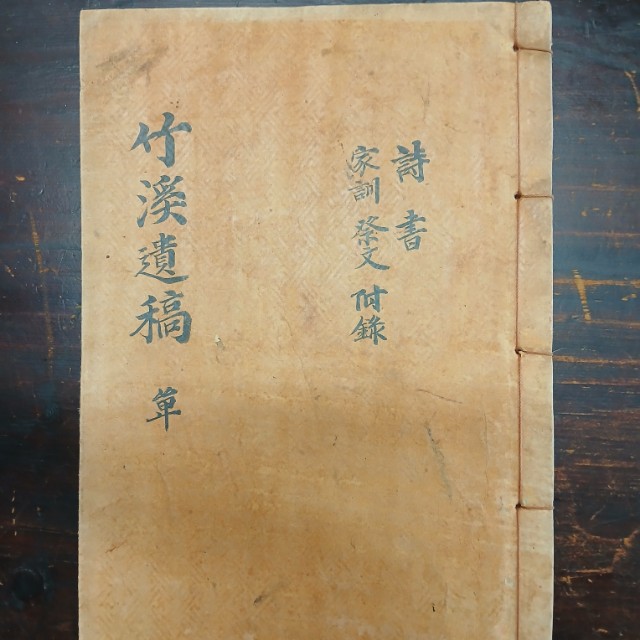 詩書
家訓 祭文 附錄
竹溪遺稿 単